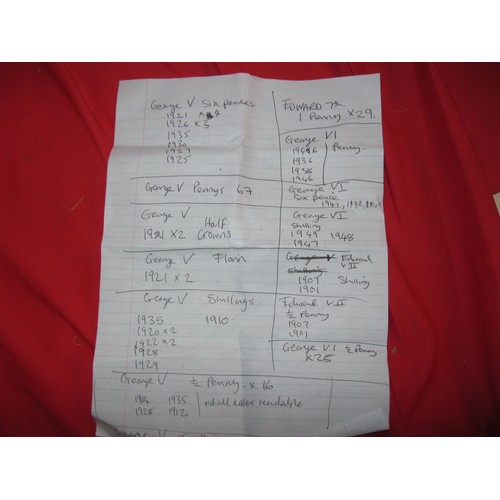 George V Sixpences
1921 x2
1926 x 3
1935
1930
1929
1925
George V Pennys 67
George V Half
1921 x2 Crowns
George V Florin
1921 x 2
George V Shillings
1935 1910
1920 x 2
1922 x 2
1928
1929
George V ½ Penny x 16
1935 not all dates readable
1928 1912
EDWARD 7th
1 Penny x 29
George VI
Penny
1936
1938
1946
George VI
Six pence
George VI
Shilling
1949 1948
1947
George V Edward
Shilling VII
1907 Shilling
1901
Edward VII
½ Penny
1907
1901
George VI ½ Penny
x 25